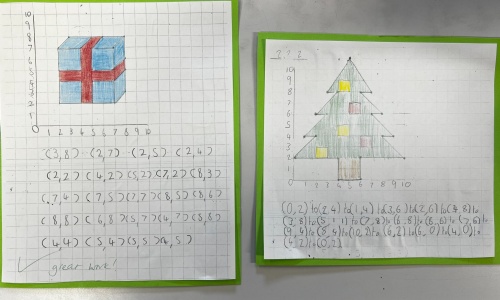 10
9
8
7
6
5
4
3
2
1
0
1 2 3 4 5 6 7 8 9 10
(3,8) (2,7) (2,5) (2,4)
(2,2) (4,2) (5,2) (7,2) (8,3)
(7,4) (7,5) (7,7) (8,5) (8,6)
(8,8) (6,8) (5,7) (4,7) (5,8)
(4,4) (5,4) (5,5) (4,5)
great work!
10
9
8
7
6
5
4
3
2
1
0
1 2 3 4 5 6 7 8 9 10
(0,2) to (2,4) to (1,4) to (3,6) to (2,6) to (4,8) to
(3,8) to (5,11) to (7,8) to (6,8) to (8,6) to (7,6) to
(9,4) to (8,4) to (10,2) to (6,2) to (6,0) to (4,0) to
(4,2) to (0,2)